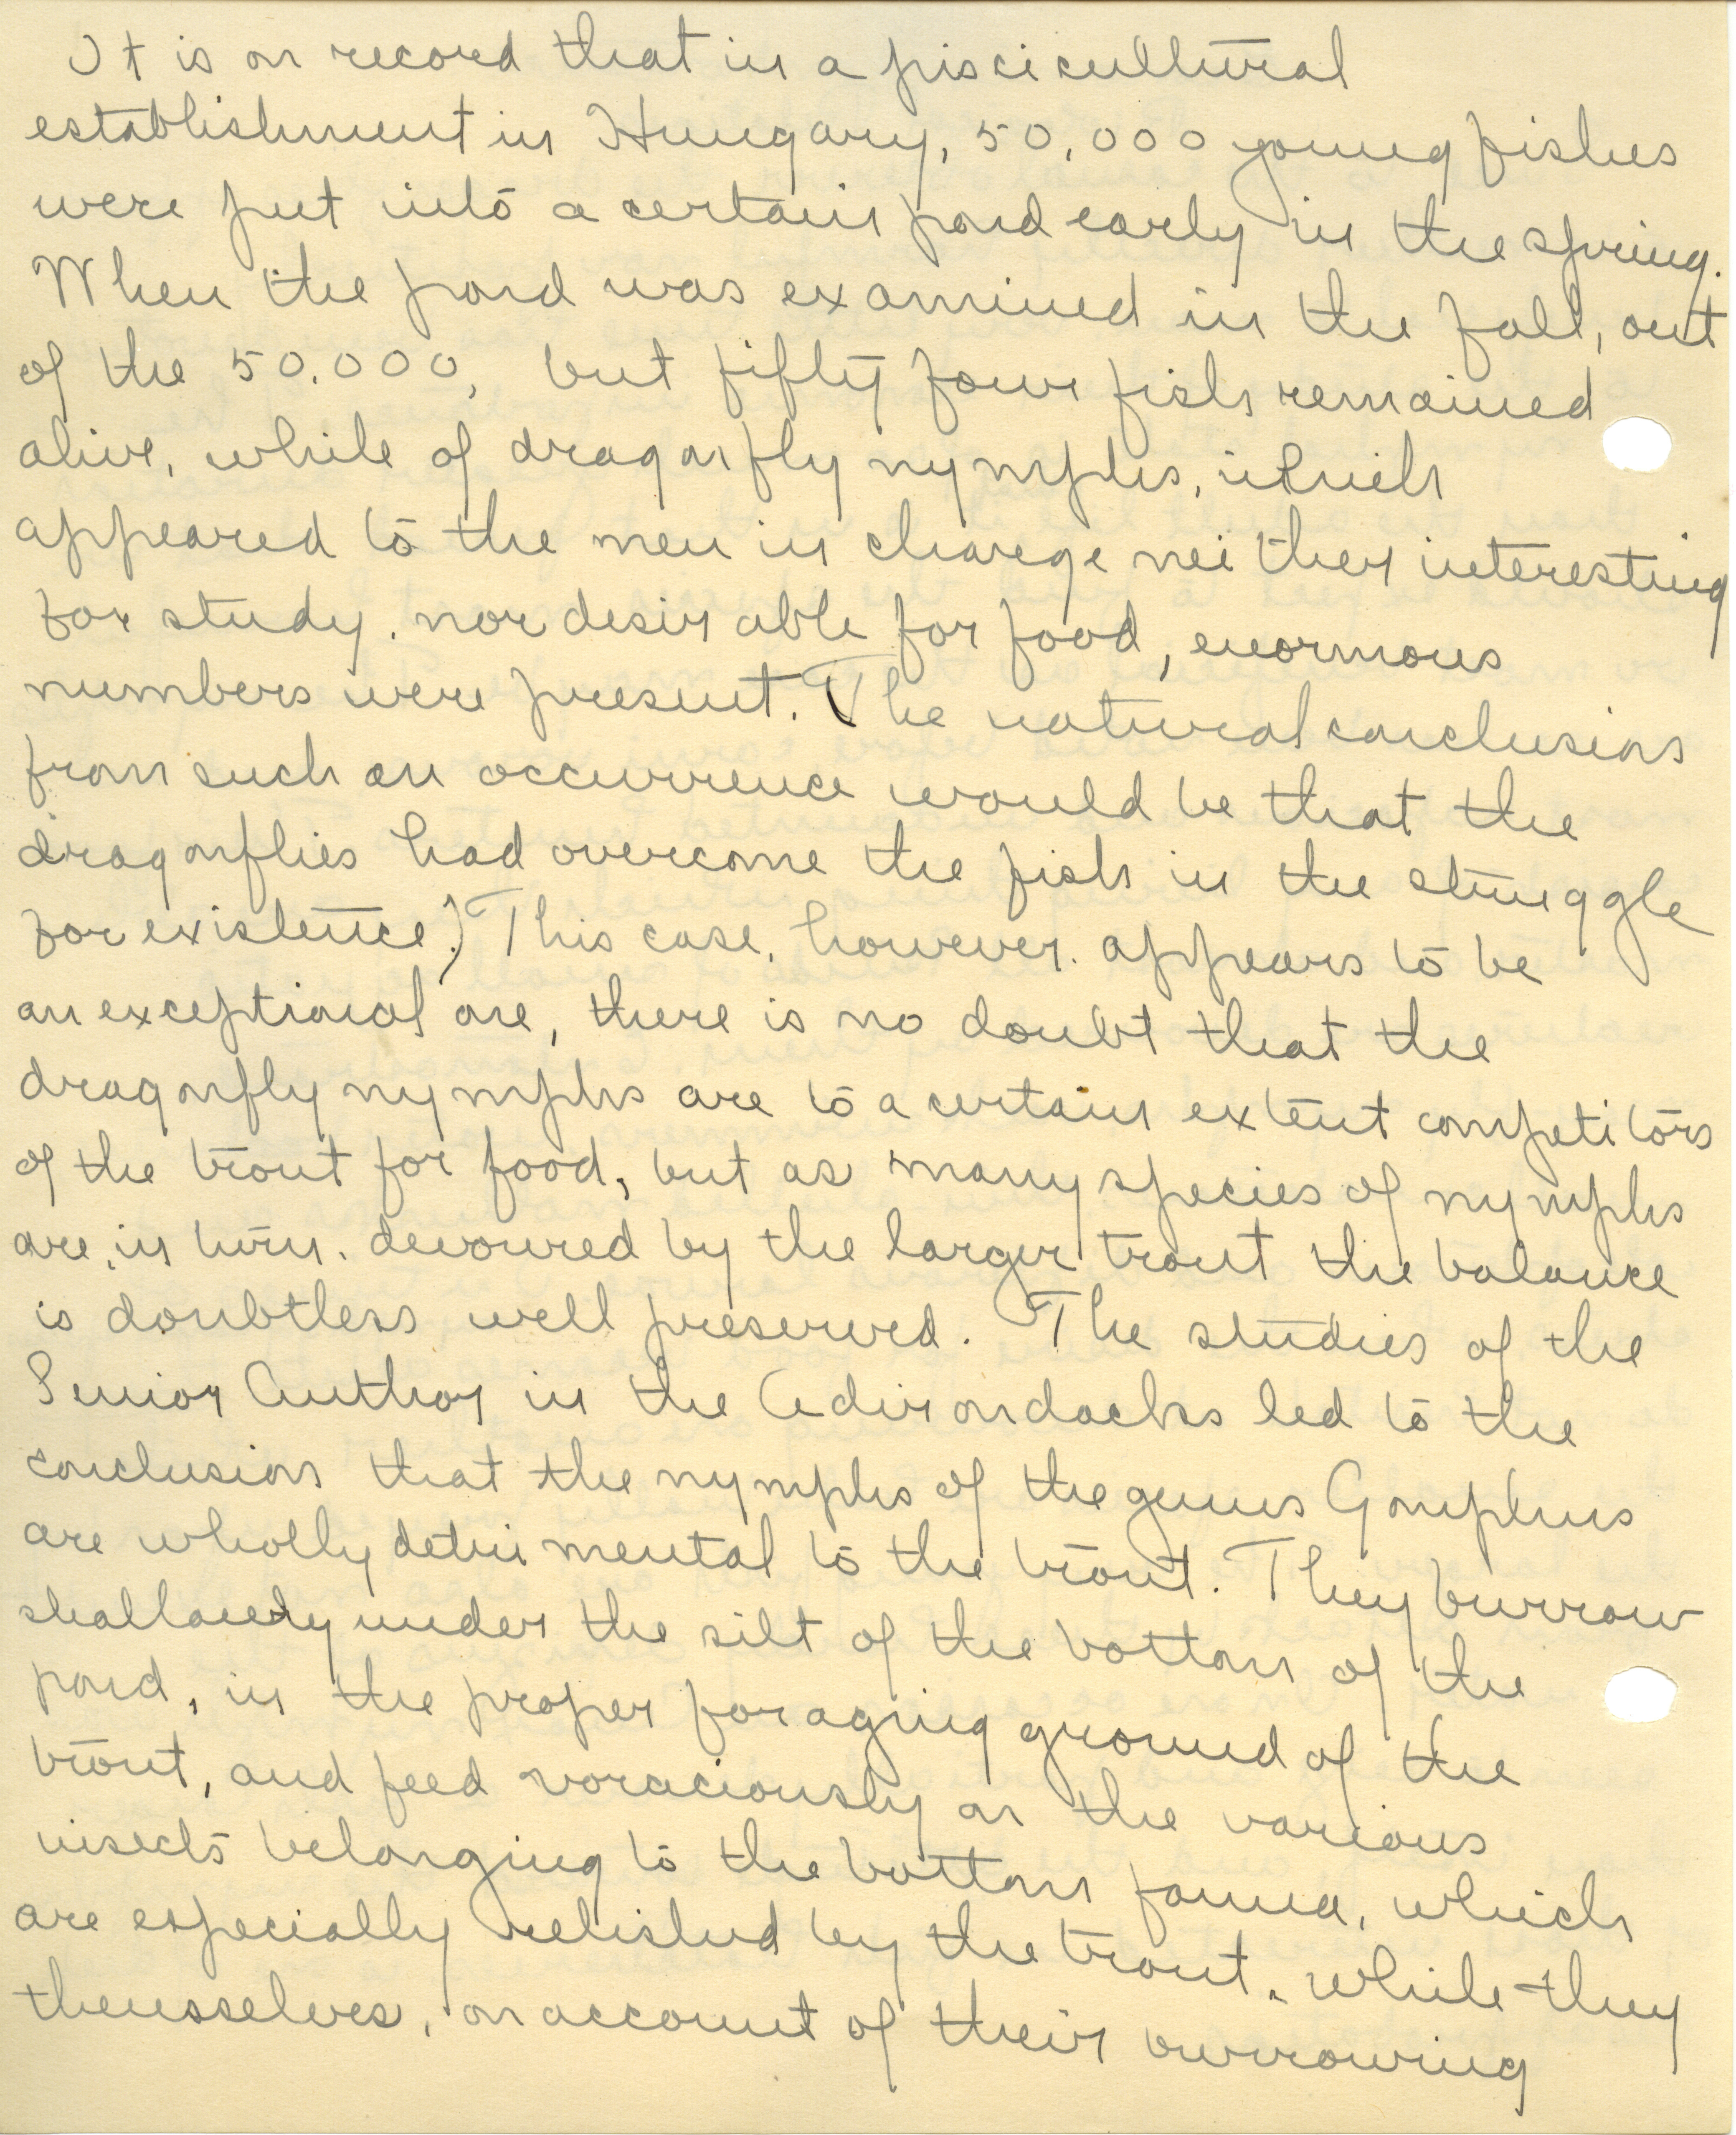 It is on record that in a piscicultural
establishment in Hungary, 50,000 young fishes
were put into a certain pond early in the spring.
When the pond was examined in the fall, out
of the 50,000, but fifty four fish remained
alive, while of dragonfly nymphs, which
appeared to the men in charge neither interesting
for study, nor desirable for food, enormous
numbers were present. The natural conclusion
from such an occurrence would be that the
dragonflies had overcome the fish in the struggle
for existence.) This case, however, appears to be
an exceptional one, there is no doubt that the
dragonfly nymphs are to a certain extent competitors
of the trout for food, but as many species of nymphs
are, in turn, devoured by the larger trout the balance
is doubtless well preserved. The studies of the
Senior Author in the Adirondacks led to the
conclusion that the nymphs of the genus Gomphus
are wholly detrimental to the trout. They burrow
shallowly under the silt of the bottom of the
pond, in the proper foraging ground of the
trout, and feed voraciously on the various
insects belonging to the bottom fauna, which
are especially relished by the trout, while they
themsselves, on account of their burrowing